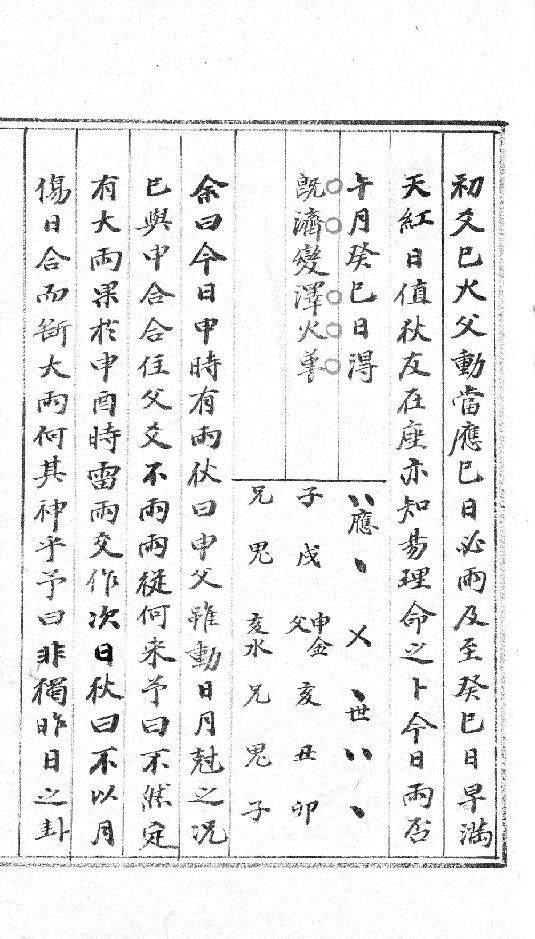 初爻巳火父動當應巳日必雨及至癸巳日早滿
天紅日值狄友在座亦知易理命之卜今日雨否
午月癸巳日得
既濟變澤火革
應 世
子 戌 申金 亥 丑 卯
父
兄 鬼 亥水 兄 鬼 子
余曰今日申時有雨狄曰申父雖動日月尅之況
巳與申合合住父爻不雨雨從何來予曰不然定
有大雨果於申酉時雷雨交作次日狄曰不以月
傷日合而斷大雨何其神乎予曰非獨昨日之卦